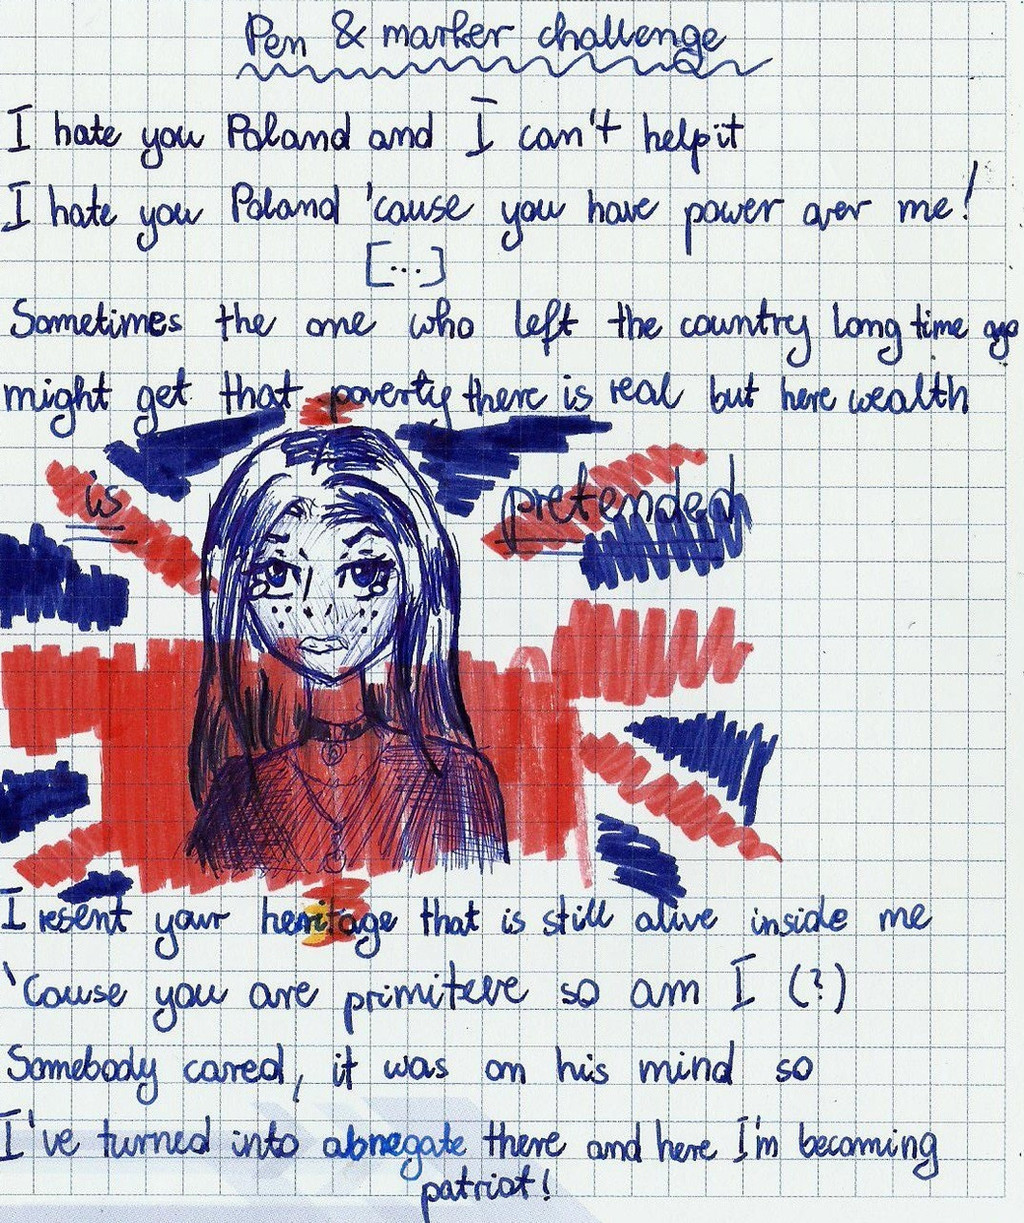 Pen & marker challenge
I hate you Poland and I can't help it
I hate you Poland 'cause you have power over me!
[...]
Sometimes the one who left the country long time ago
might get that poverty there is real but here wealth
is pretended
I resent your heritage that is still alive inside me
'Cause you are primiteve so am I (?)
Somebody cared, it was on his mind so
I've turned into abnegate there and here I'm becoming
patriot!